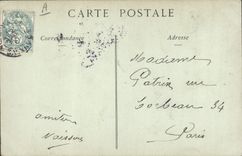 A
CARTE POSTALE
Correspondance
Adresse
Madame
Patrix rue
Corbeau 34
Paris
amitiés